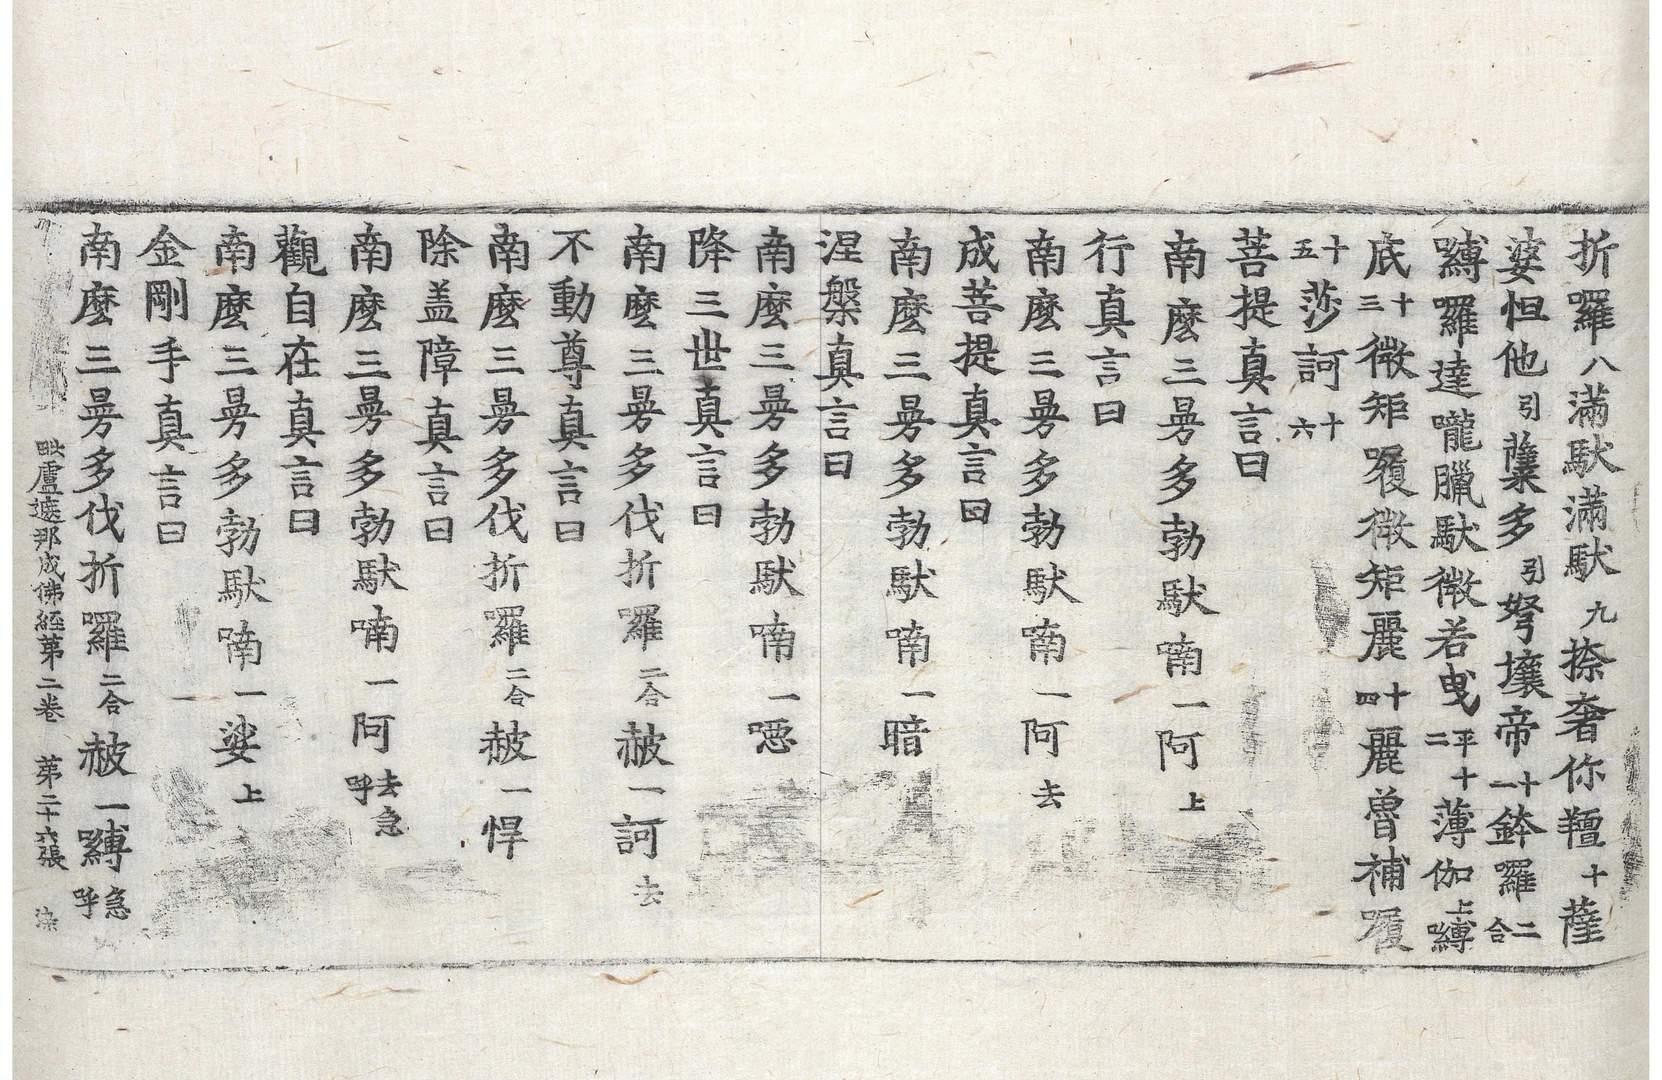 折囉八滿馱滿馱九捺奢你羶十薩
婆怛他引蘖多引弩壤帝十一鉢囉二合
嚩囉達嚨臘馱微若曳平十二薄伽上嚩
底十三微矩㗚微矩麗十四麗魯補㗚
十五莎訶十六
菩提真言曰
南麼三曼多勃馱喃一阿上
行真言曰
南麼三曼多勃馱喃一阿去
成菩提真言曰
南麼三曼多勃馱喃一暗
涅槃真言曰
南麼三曼多勃馱喃一噁
降三世真言曰
南麼三曼多伐折囉二合赧一訶去
不動尊真言曰
南麼三曼多伐折囉二合赧一悍
除盖障真言曰
南麼三曼多勃馱喃一阿去急呼
觀自在真言曰
南麼三曼多勃馱喃一娑上
金剛手真言曰
南麼三曼多伐折囉二合赧一嚩急呼
毗盧遮那成佛經第二卷 第二十六張